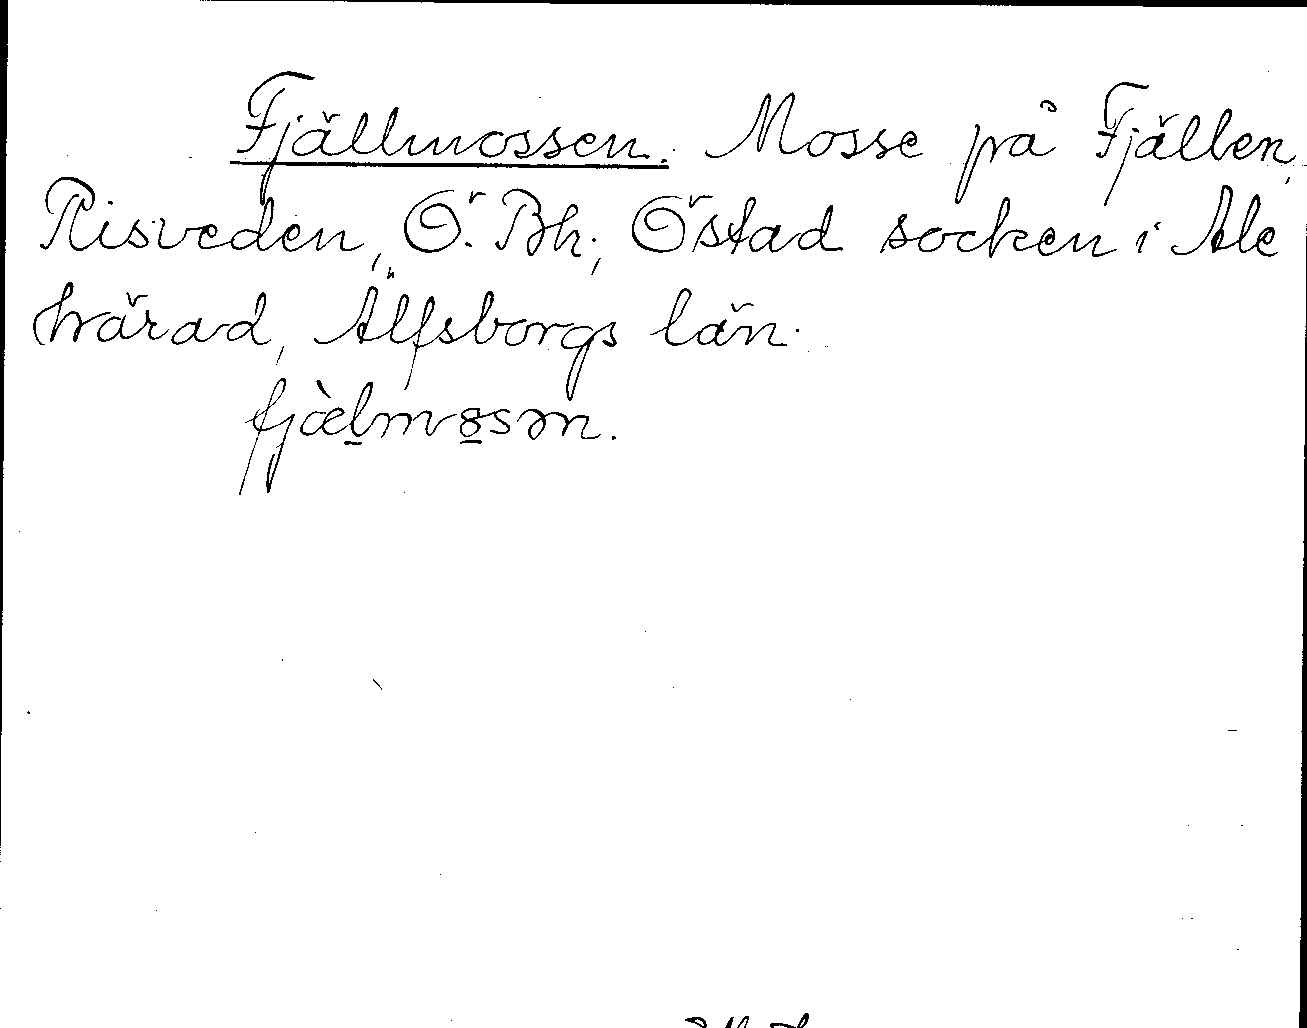 Fjällmossen. Mosse på Fjällen,
Risveden, Ö. Bh; Östad socken i Ale
härad, Älfsborgs län.